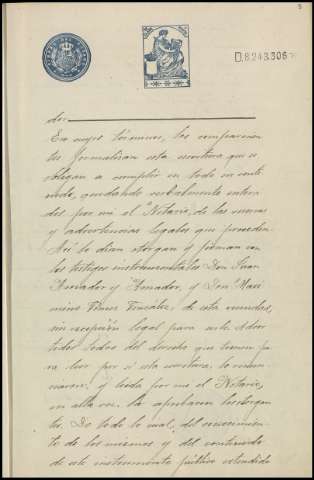 D.8243.306
dor.
En cuyos términos, los comparecien
tes formalizan esta escritura que se
obligan a cumplir en todo su conte
nido, quedando verbalmente entera
dos por mi el Notario, de las reservas
y advertencias legales que proceden.
Así lo dicen otorgan y firman con
los testigos instrumentales Don Juan
Amador y Amador, y Don Maxi
mino González, de esta vecindad,
sin excepción legal para serlo. Adver
tidos todos del derecho que tienen pa
ra leer por si esta escritura, lo renun
ciaron, y leida por mi el Notario,
en alta voz la aprueban los otorgan
tes. De todo lo cual, del conocimien
to de los mismos y del contenido
de este instrumento público extendido